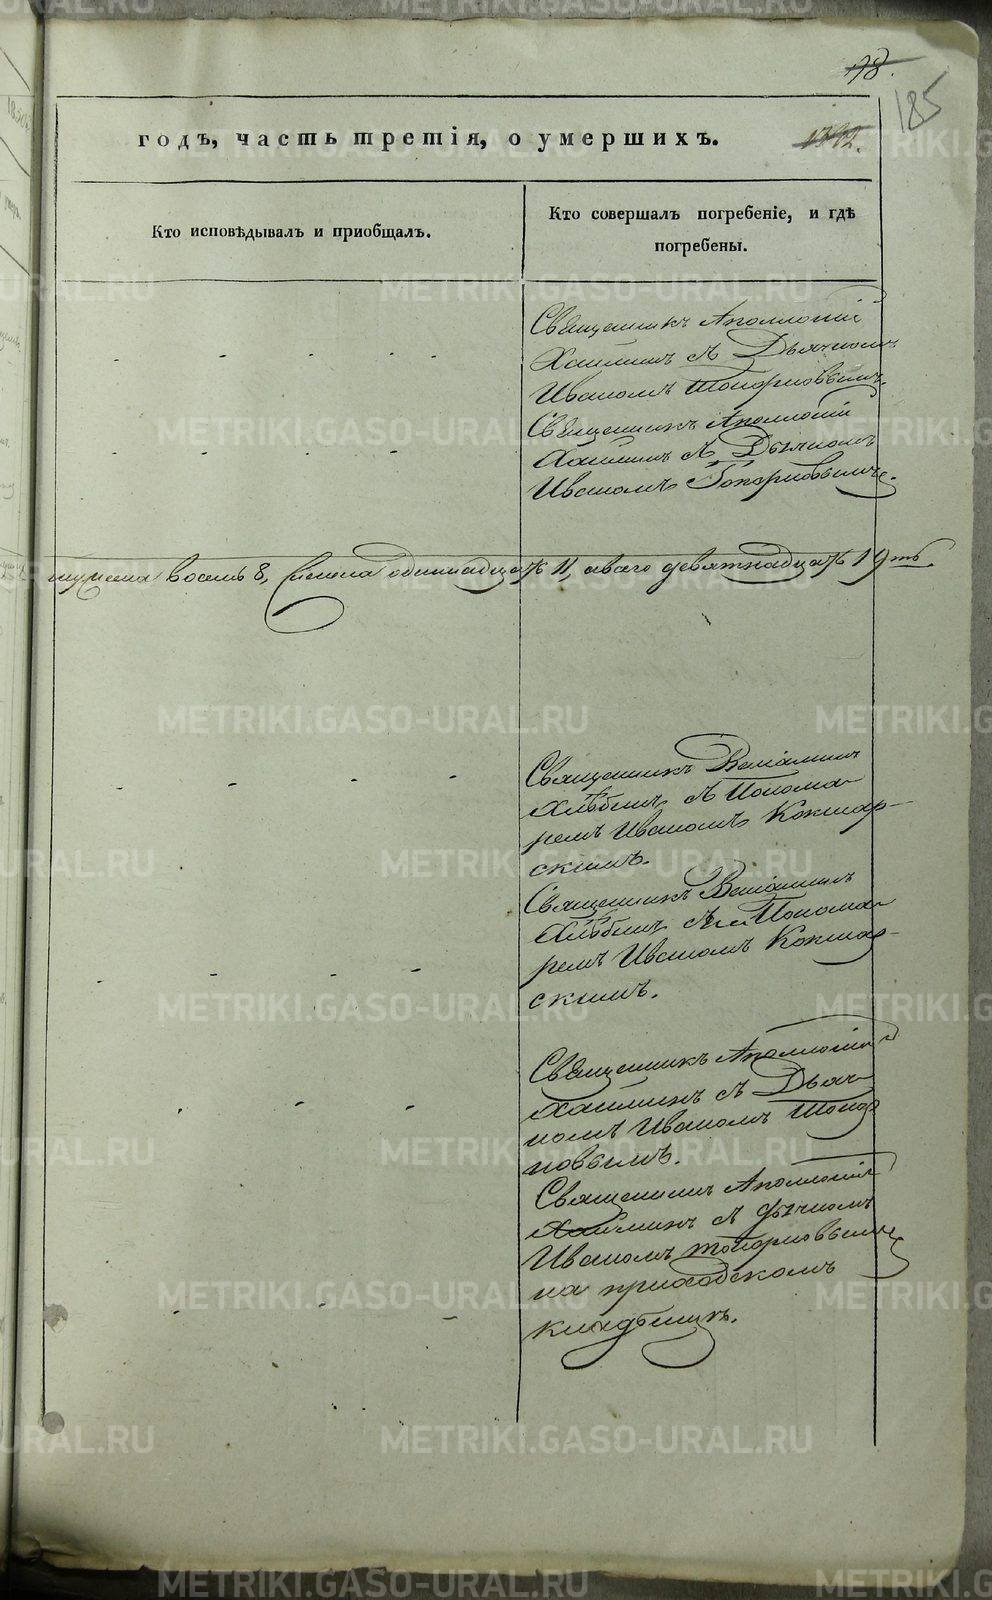 178.
185
годъ, часть третія, о умершихъ.
Кто исповѣдывалъ и пріобщалъ.
Кто совершалъ погребеніе, и гдѣ
погребены.
Священникъ Аполлоній
Хаилинъ съ Дьячкомъ
Иваномъ Топорковымъ.
Священникъ Аполлоній
Хаилинъ съ Дьячкомъ
Иваномъ Топорковымъ.
мужеска восемь 8, женска одиннадцать 11, а всего девятнадцать 19ть.
Священникъ Веніаминъ
Хлѣбинъ съ Понома-
ремъ Иваномъ Кокшар-
скимъ.
Священникъ Веніаминъ
Хлѣбинъ съ Понома-
ремъ Иваномъ Кокшар-
скимъ.
Священникъ Аполлоній
Хаилинъ съ Дьяч-
комъ Иваномъ Топор
ковымъ.
Священникъ Аполлоній
Хаилинъ съ дьячкомъ
Иваномъ Топорковымъ
на приходскомъ
кладбищѣ.
METRIKI.GASO-URAL.RU